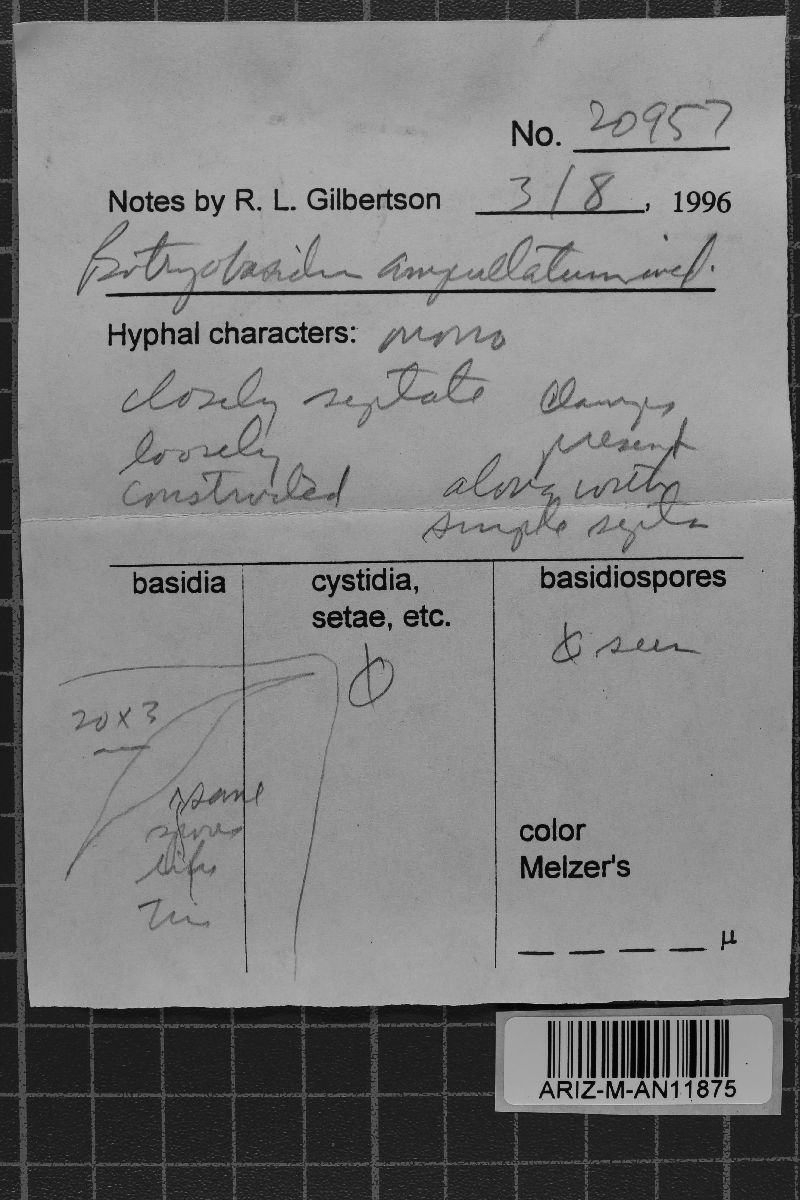 No. 20957
Notes by R. L. Gilbertson 3/8, 1996
Botryobasidium ampullatum ined.
Hyphal characters: mono
closely septate clamps
loosely present
constructed along with
simple septa
basidia cystidia, setae, etc. basidiospores
Ø Ø seen
20 x 3
same
spores
color
Melzer's
_ _ _ _ µ
ARIZ-M-AN11875